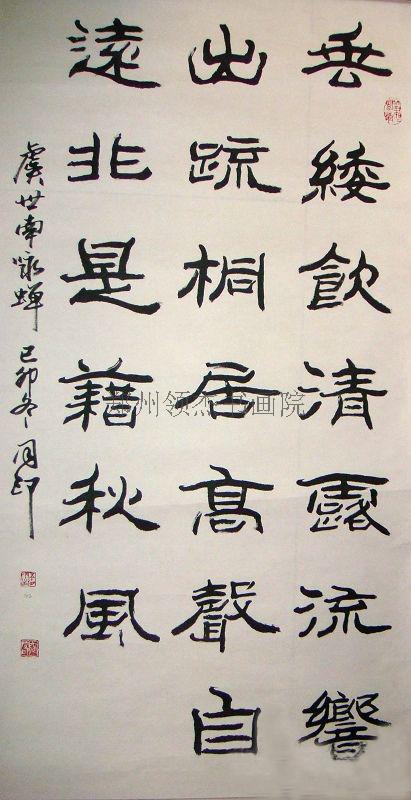 垂緌飲清露流響
出疏桐居高聲自
遠非是藉秋風
虞世南咏蝉 己卯冬
郑州领杰书画院